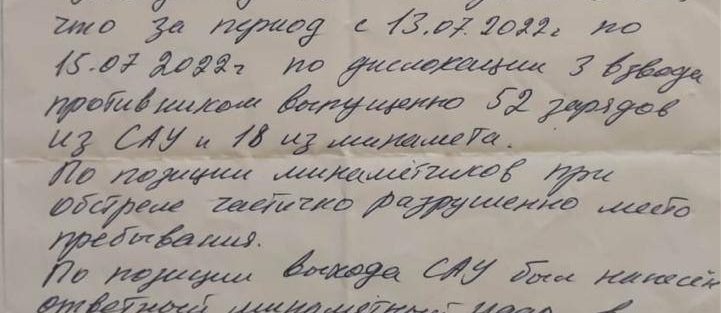 что за период с 13.07.2022г по
15.07 2022г по дислокации 3 взвода
противником выпущенно 52 зарядов
из САУ и 18 из минамета.
По позиции минаметчиков при
обстреле частично разрушенно место
пребывания.
По позиции выхода САУ был нанесён
ответный минаметный удар в